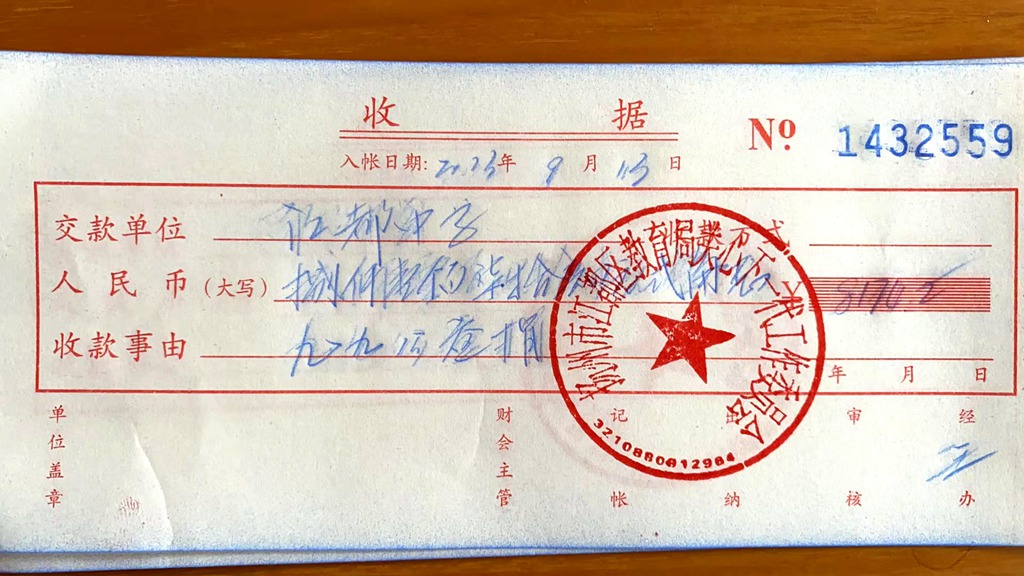 收 据
Nº 1432559
入帐日期: 2023年 9 月 13 日
交款单位
人民币 (大写) 捌仟壹佰柒拾
收款事由 九九公益捐
年 月 日
单位盖章 财会主管 记帐 出纳 审核 经办
扬州市江都区教育局关心下一代工作委员会
3210880812984